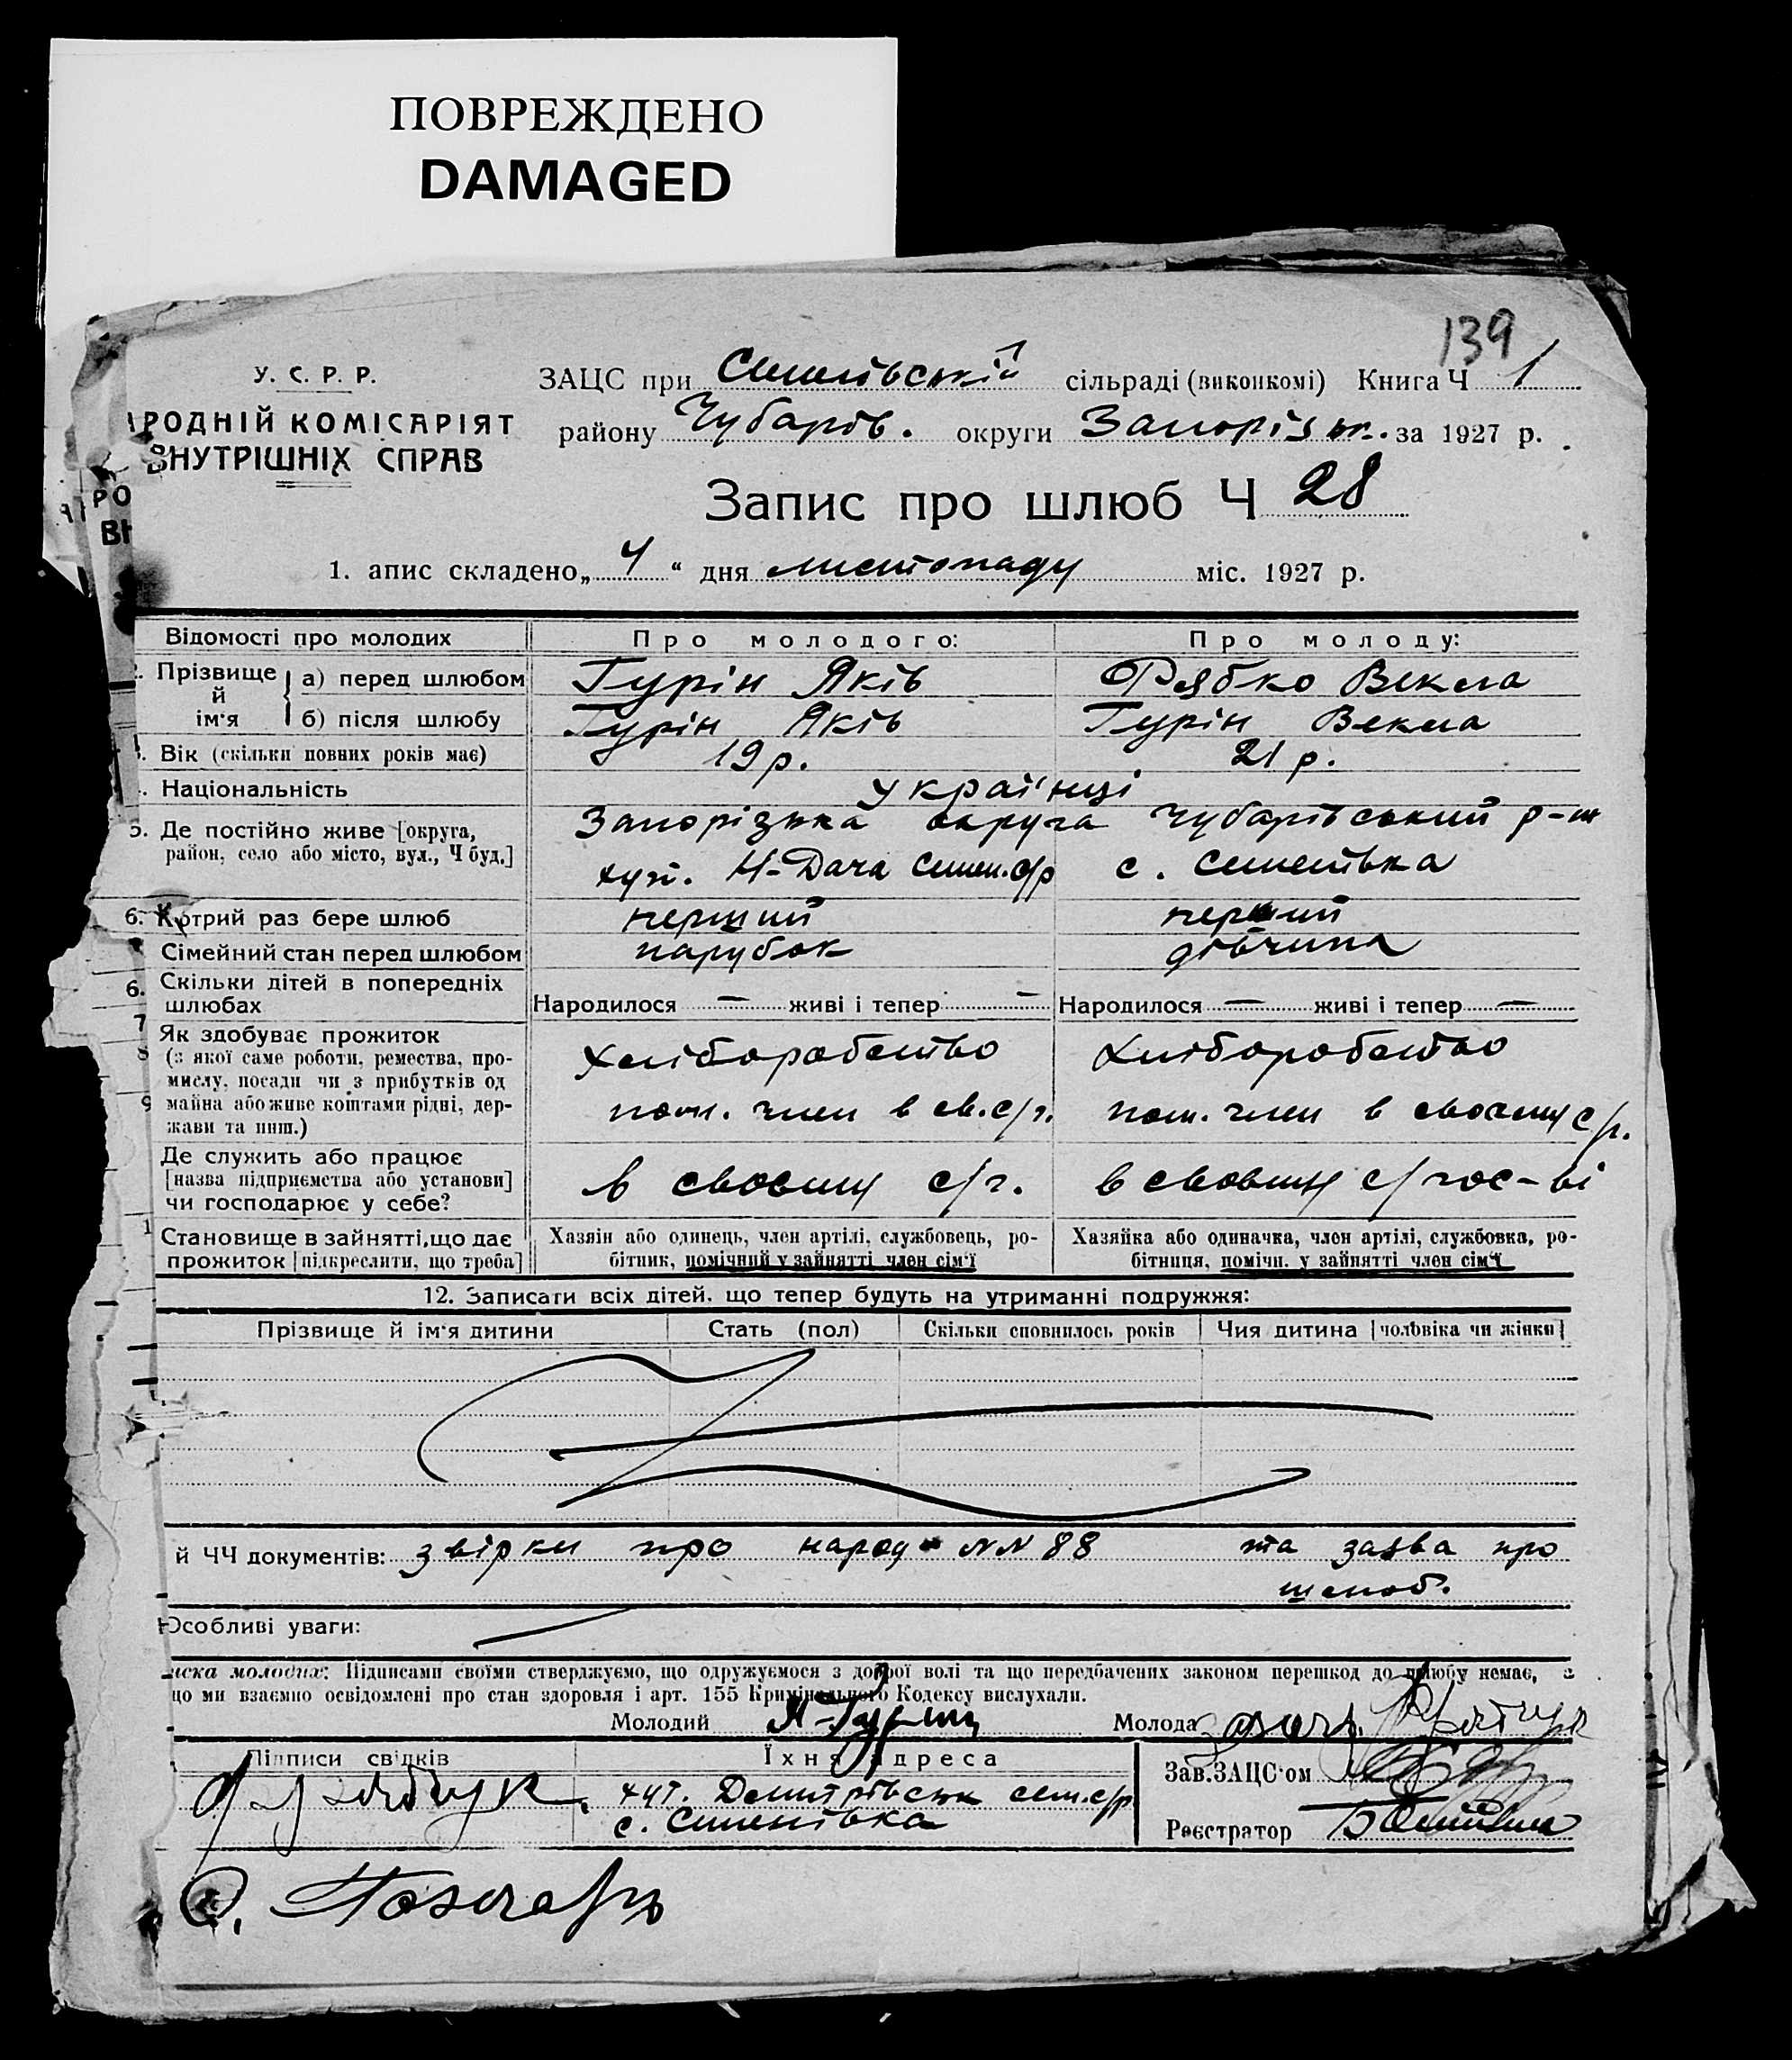 ПОВРЕЖДЕНО
DAMAGED
139
У. С. Р. Р.
РОДНІЙ КОМІСАРІЯТ
ВНУТРІШНІХ СПРАВ
РО
ВН
ЗАЦС при сільраді (виконкомі) Книга Ч 1
району Чубарів. округи Запорізьк. за 1927 р.
Запис про шлюб Ч 28
1. апис складено „ 4 “ дня листопаду міс. 1927 р.
Відомості про молодих Про молодого: Про молоду:
Прізвище й ім'я
а) перед шлюбом Гурін Яків Рябко Векла
б) після шлюбу Гурін Яків Гурін Векла
Вік (скільки повних років має) 19 р. 21 р.
Національність українці
5. Де постійно живе [округа, район, село або місто, вул., Ч буд.] Запорізька округа Чубарівський р-н
хут. Н-Дача с/р с. Семенівка
6. Котрий раз бере шлюб перший перший
Сімейний стан перед шлюбом парубок дівчина
6. Скільки дітей в попередніх шлюбах Народилося — живі і тепер — Народилося — живі і тепер —
7
8
9
Як здобуває прожиток
(з якої саме роботи, ремества, про-
мислу, посади чи з прибутків од
майна або живе коштами рідні, дер-
жави та инш.)
Хліборобство Хліборобство
пом. член в св. с/г. пом. член в своєму с/г.
Де служить або працює
[назва підприємства або установи]
чи господарює у себе?
в своєму с/г. в своєму с/гос-ві
1
Становище в зайнятті, що дає
прожиток [підкреслити, що треба]
Хазяїн або одинець, член артілі, службовець, ро-
бітник, помічний у зайнятті член сім'ї
Хазяйка або одиначка, член артілі, службовка, ро-
бітниця, помічн. у зайнятті член сім'ї
12. Записати всіх дітей, що тепер будуть на утриманні подружжя:
Прізвище й ім'я дитини Стать (пол) Скільки сповнилось років Чия дитина [чоловіка чи жінки]
й ЧЧ документів: звірки про народ NN 88 та заява про
шлюб.
Особливі уваги:
иска молодих: Підписами своїми стверджуємо, що одружуємося з доброї волі та що передбачених законом перешкод до шлюбу немає, а
що ми взаємно освідомлені про стан здоровля і арт. 155 Кримінального Кодексу вислухали.
Молодий Молода
Підписи свідків Їхня адреса Зав.ЗАЦС'ом
хут. с/р
с. Семенівка
Реєстратор